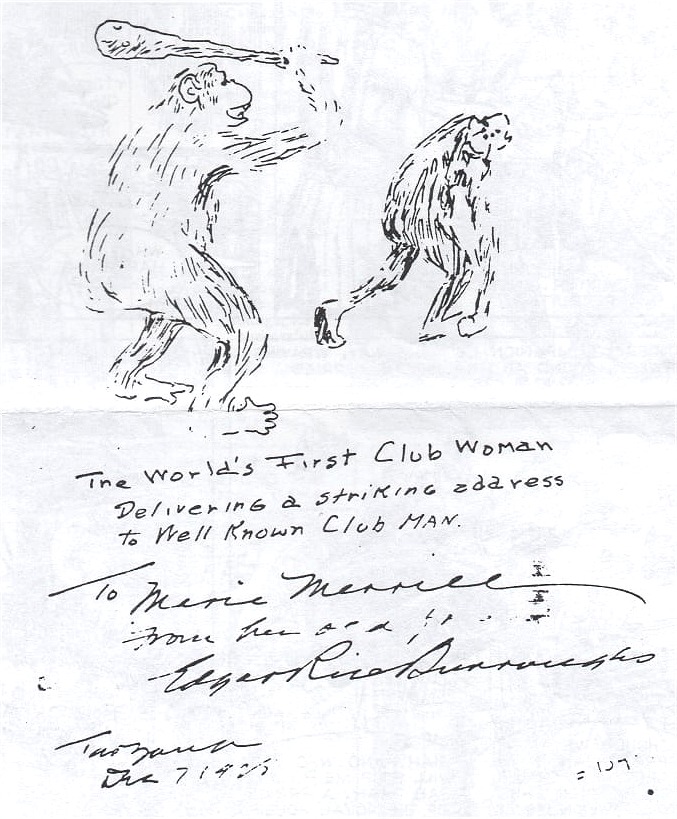 The World's First Club Woman
Delivering a striking address
to Well Known Club MAN.
To Marie Merrill
from her old
Edgar Rice Burroughs
Tarzana
Dec 7 192